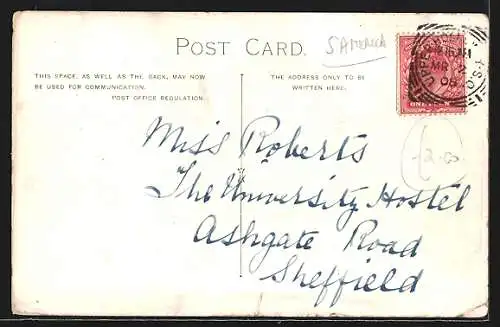 S AMERICA
POST CARD.
THIS SPACE, AS WELL AS THE BACK, MAY NOW
BE USED FOR COMMUNICATION.
POST OFFICE REGULATION.
THE ADDRESS ONLY TO BE
WRITTEN HERE.
MR
05
ONE PENNY
Miss Roberts
The University Hostel
Ashgate Road
Sheffield